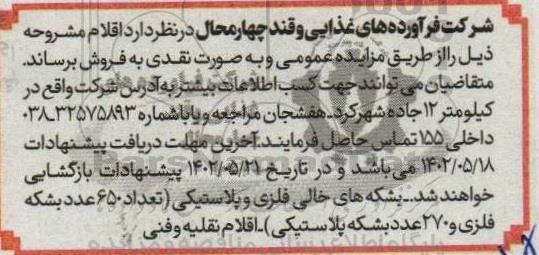 شرکت فرآورده‌های غذایی و قند چهارمحال در نظر دارد اقلام مشروحه
ذیل را از طریق مزایده عمومی و به صورت نقدی به فروش برساند.
متقاضیان می توانند جهت کسب اطلاعات بیشتر به آدرس شرکت واقع در
کیلومتر ۱۲ جاده شهرکرد_هفشجان مراجعه و یا با شماره ۳۲۵۷۵۸۹۳_۰۳۸
داخلی ۱۵۵ تماس حاصل فرمایند. آخرین مهلت دریافت پیشنهادات
۱۴۰۲/۰۵/۱۸ می باشد و در تاریخ ۱۴۰۲/۰۵/۲۱ پیشنهادات بازگشایی
خواهند شد._بشکه های خالی فلزی و پلاستیکی (تعداد ۶۵۰ عدد بشکه
فلزی و ۲۷۰ عدد بشکه پلاستیکی)_اقلام نقلیه و فنی